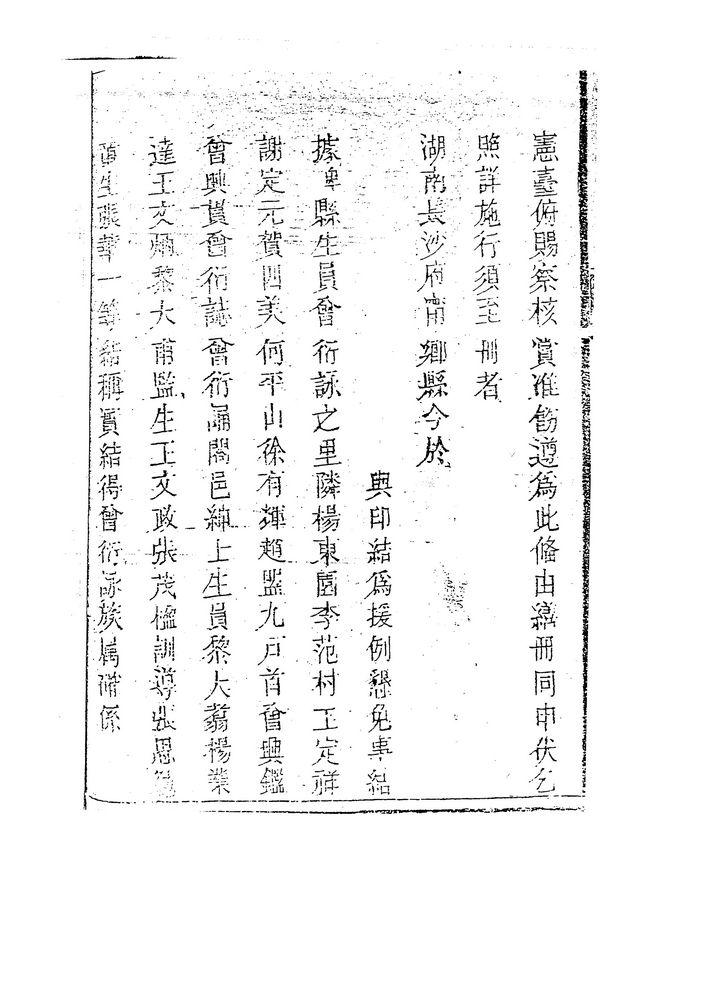 憲臺俯賜察核賞准飭遵為此俻由繕冊同申伏乞
照詳施行須至冊者
湖南長沙府甯鄉縣今於
與印結為援例懇免事結
據卑縣生員曾衍詠之里隣楊東園李范村王定祥
謝定元賀四美何平山徐有輝趙盟九戶首曾興鑑
曾興貰曾衍誌曾衍誦闔邑紳士生員黎大翥楊業
達王文炳黎大甫監生王文政張茂楹訓導張恩
生張華一等結稱實結得曾衍詠族属確係